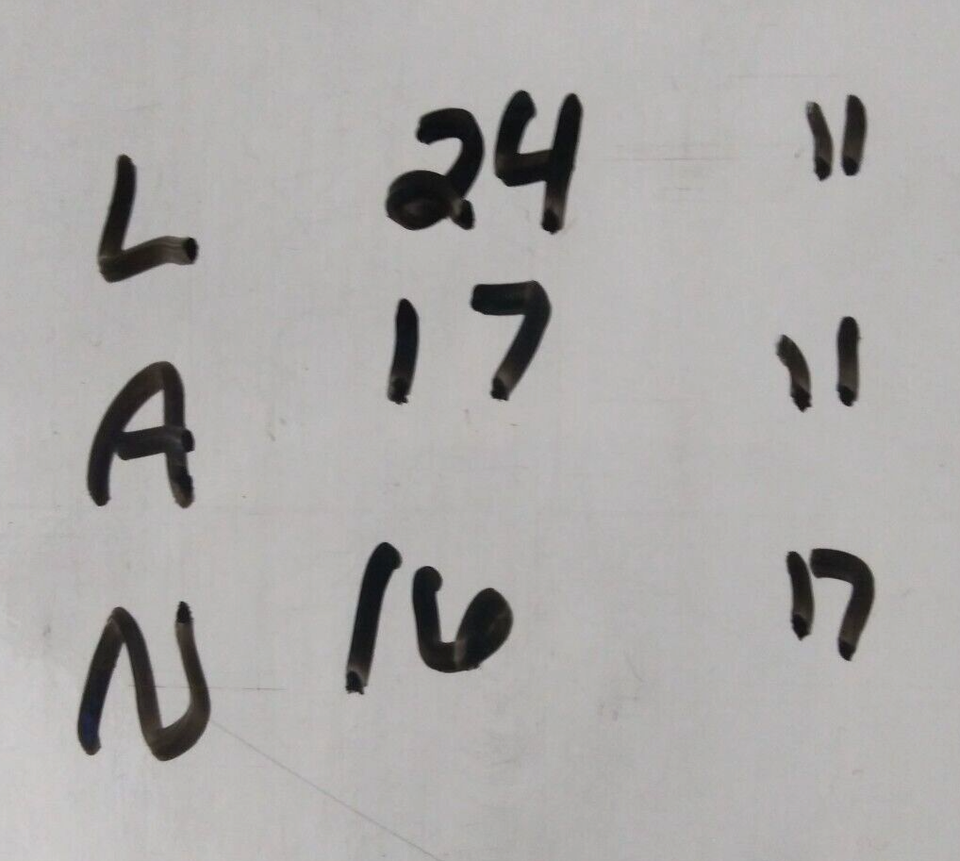 L 24 11
A 17 11
N 16 17